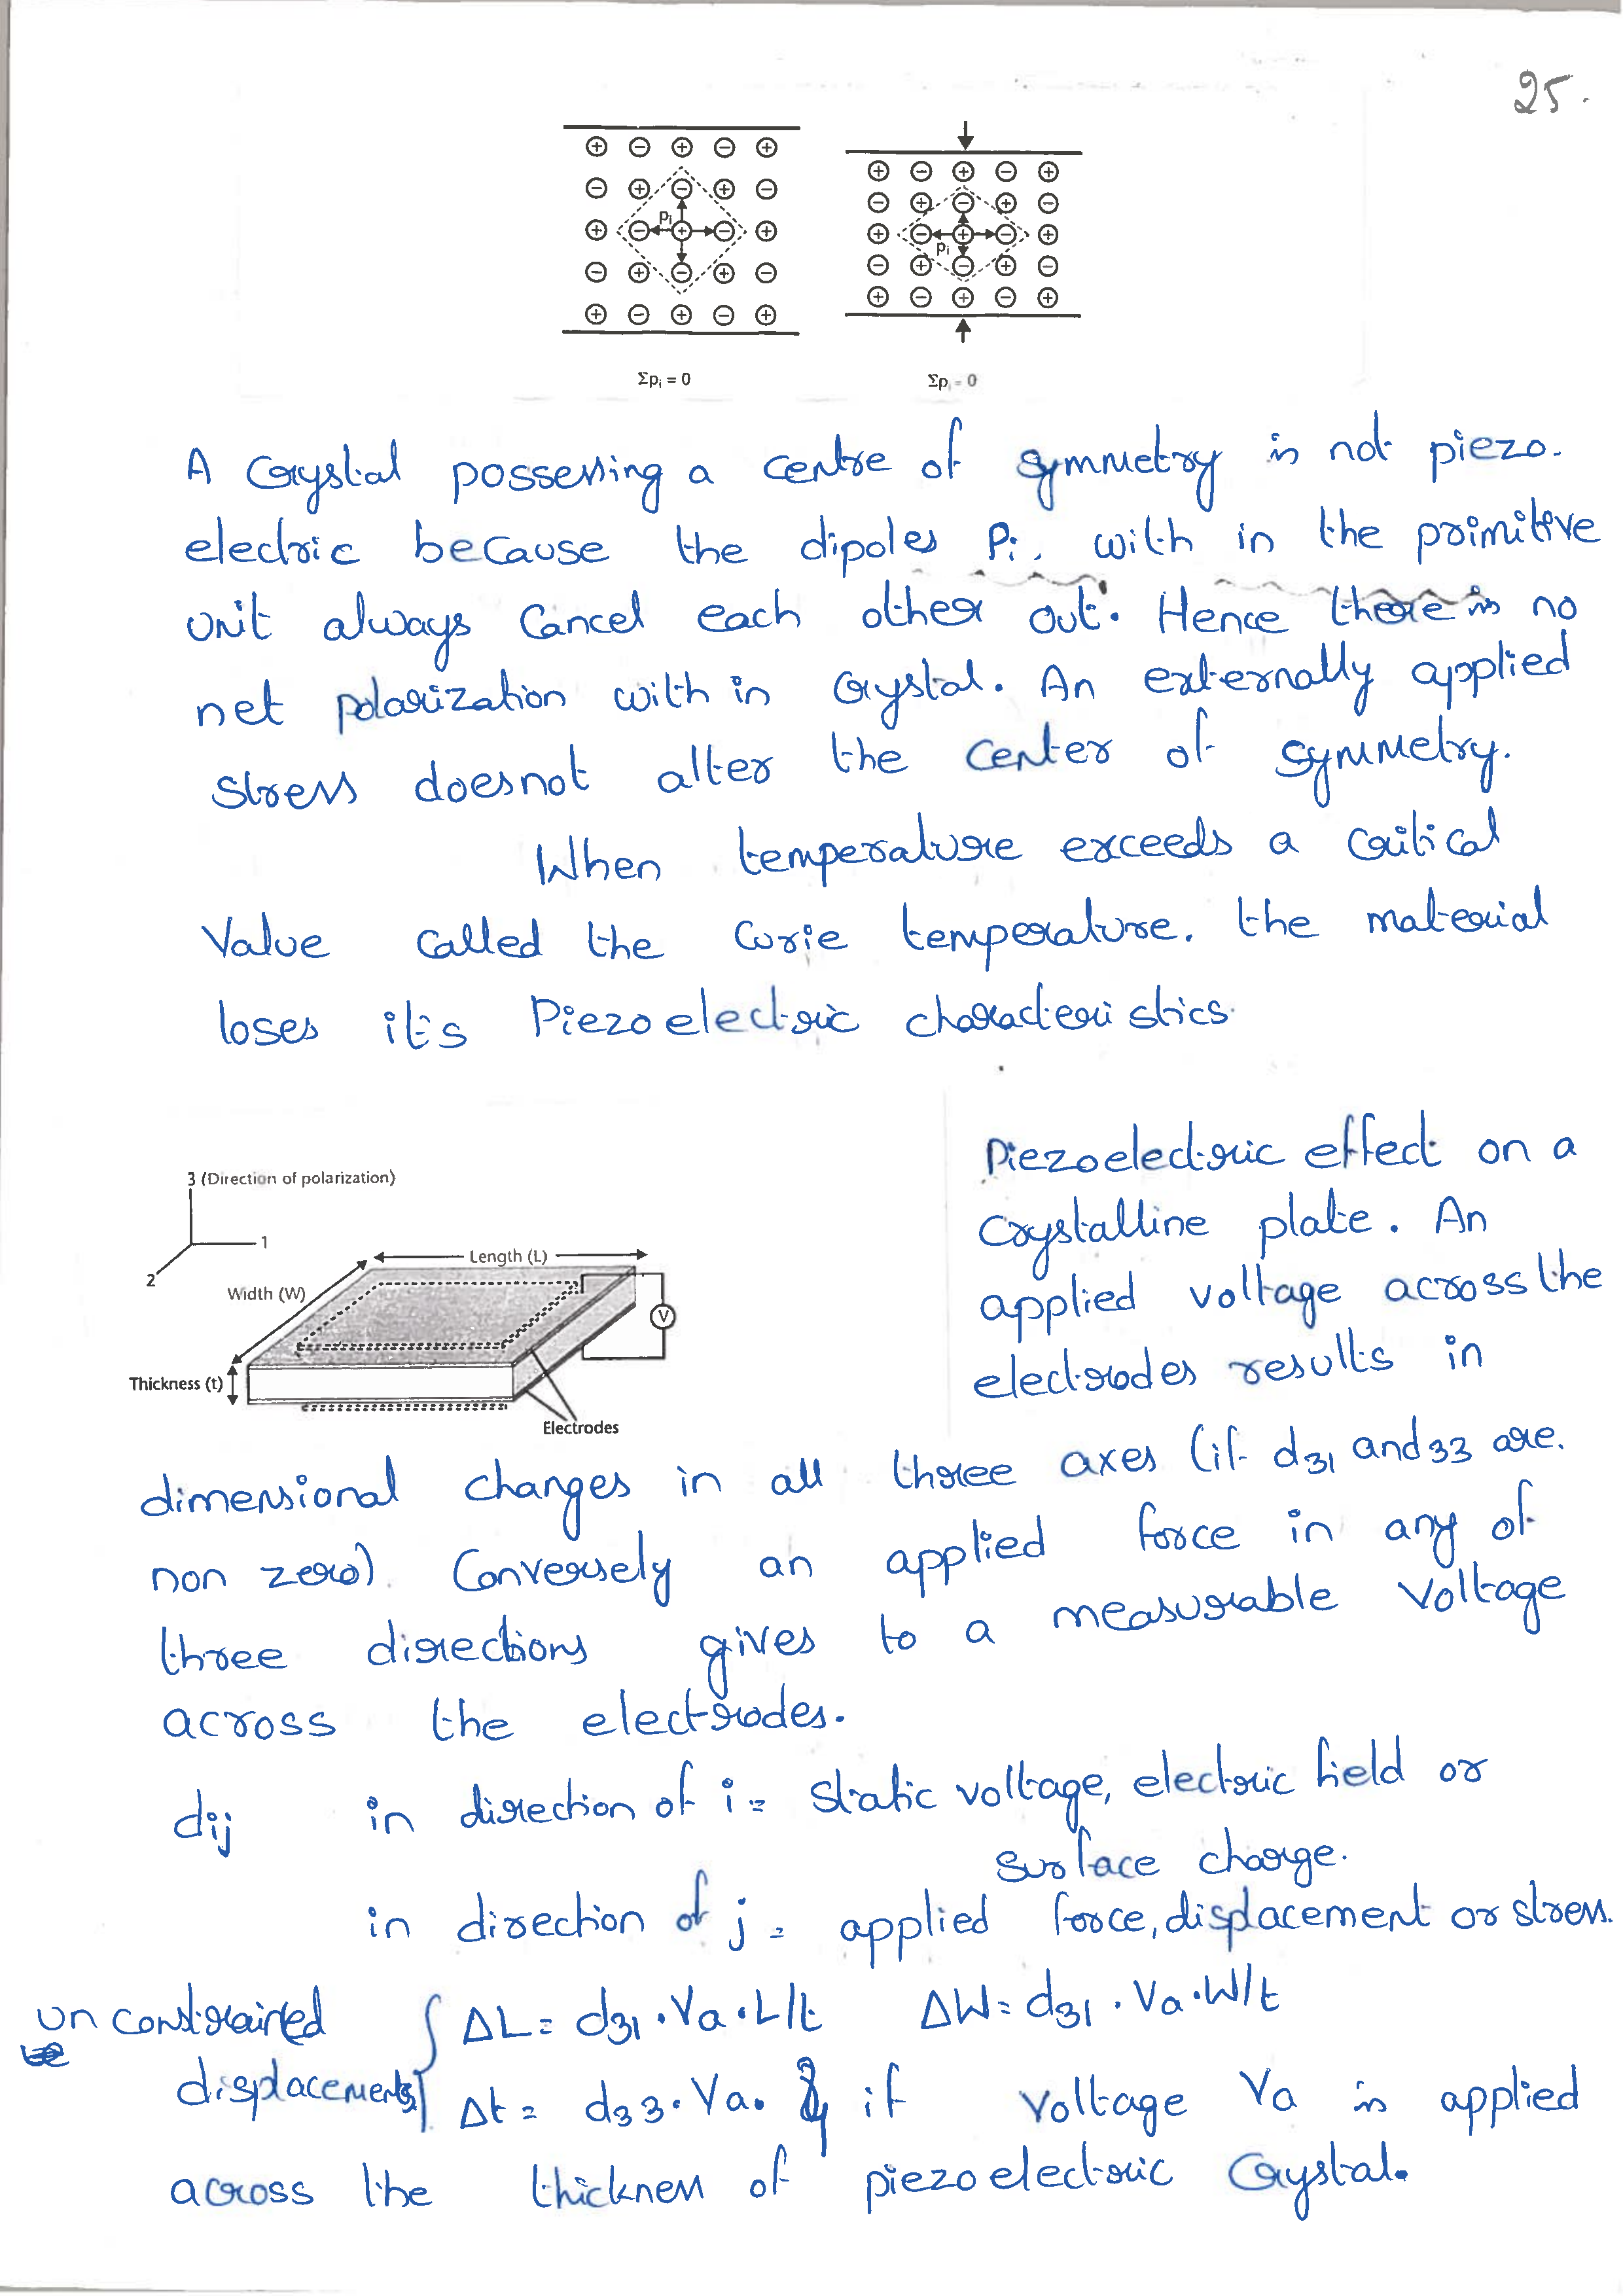 25.
pi
pi
Σpi = 0
Σpi = 0
A Crystal possessing a centre of symmetry is not piezo.
electric because the dipoles Pi. with in the primitive
unit always Cancel each other out. Hence there is no
net polarization with in Crystal. An externally applied
Stress doesnot alter the Center of Symmetry.
When temperature exceeds a Critical
Value Called the Curie temperature. the material
loses it's Piezoelectric characteristics.
3 (Direction of polarization)
1
2
Length (L)
Width (W)
V
Thickness (t)
Electrodes
Piezoelectric effect on a
Crystalline plate. An
applied voltage across the
electrodes results in
dimensional changes in all three axes (if d31 and 33 are.
non zero). Conversely an applied force in any of
three directions gives to a measurable Voltage
across the electrodes.
dij in direction of i = Static voltage, electric field or
Surface charge.
in direction of j = applied force, displacement or stress.
unconstrained
displacements
ΔL = d31 . Va . L/t ΔW = d31 . Va . W/t
Δt = d33 . Va . if Voltage Va is applied
across the thickness of piezoelectric Crystal.